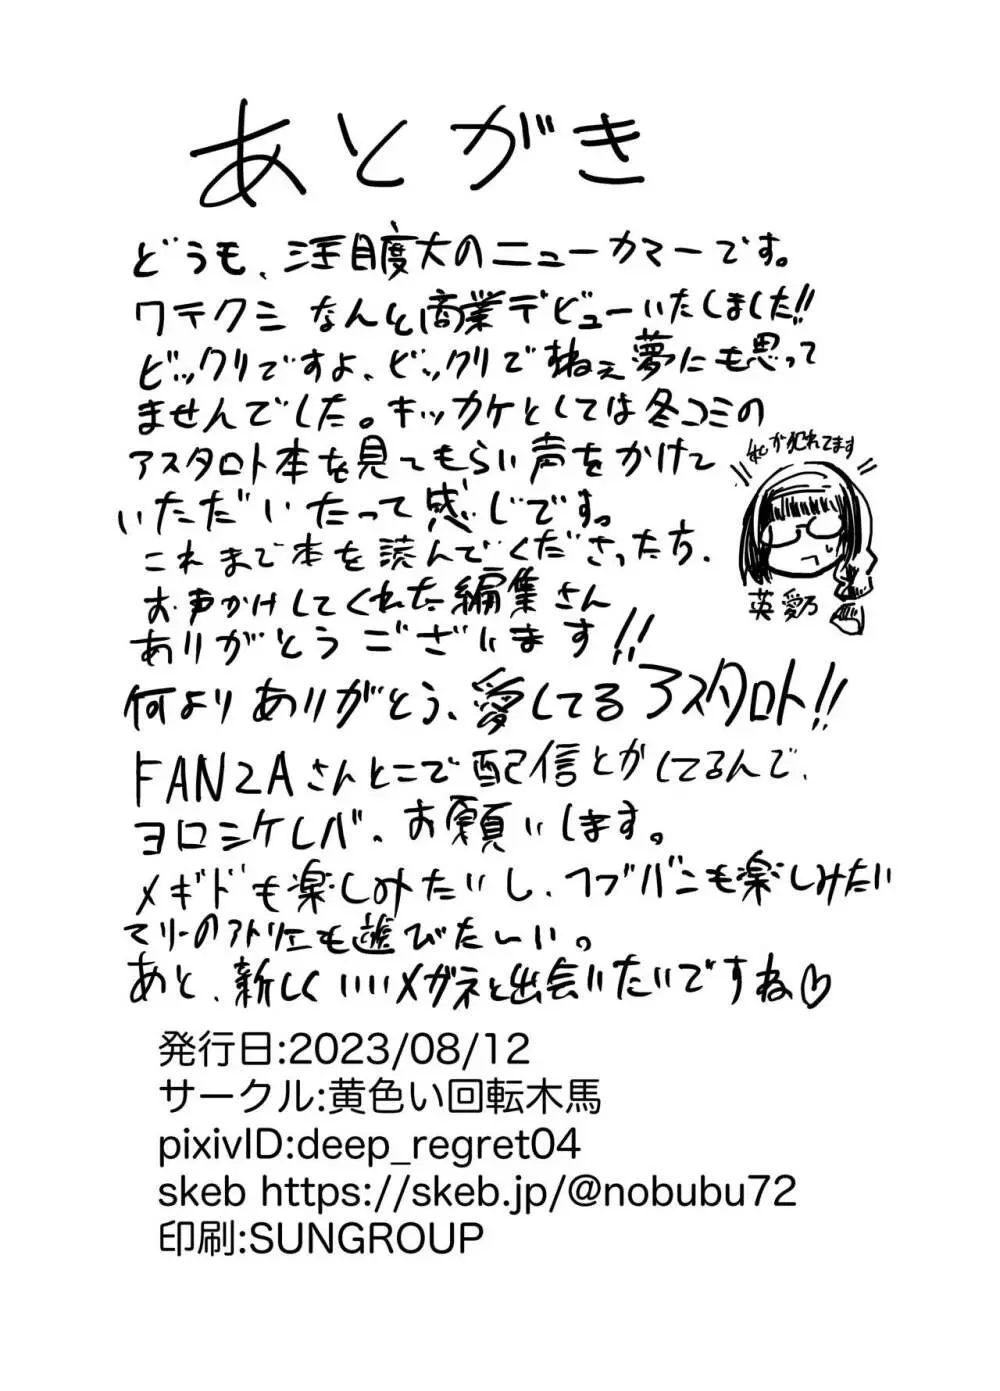 あとがき
どうも、注目度大のニューカマーです。
ワテクシ なんと商業デビューいたしました!!
ビックリですよ、ビックリでねぇ夢にも思って
ませんでした。キッカケとしては冬コミの
アスタロト本を見てもらい声をかけて
いただいたって感じです。
これまで本を読んでくださった方、
お声かけしてくれた編集さん
ありがとうございます!!
何よりありがとう、愛してるアスタロト!!
FANZAさんとこで配信とかしてるんで、
ヨロシケレバ、お願いします。
メギドも楽しみたいし、ヘブバンも楽しみたい
マリーのアトリエも遊びたーい。
あと、新しくいいメガネと出会いたいですね♡
かが犯れてます
英愛乃
発行日:2023/08/12
サークル:黄色い回転木馬
pixivID:deep_regret04
skeb https://skeb.jp/@nobubu72
印刷:SUNGROUP